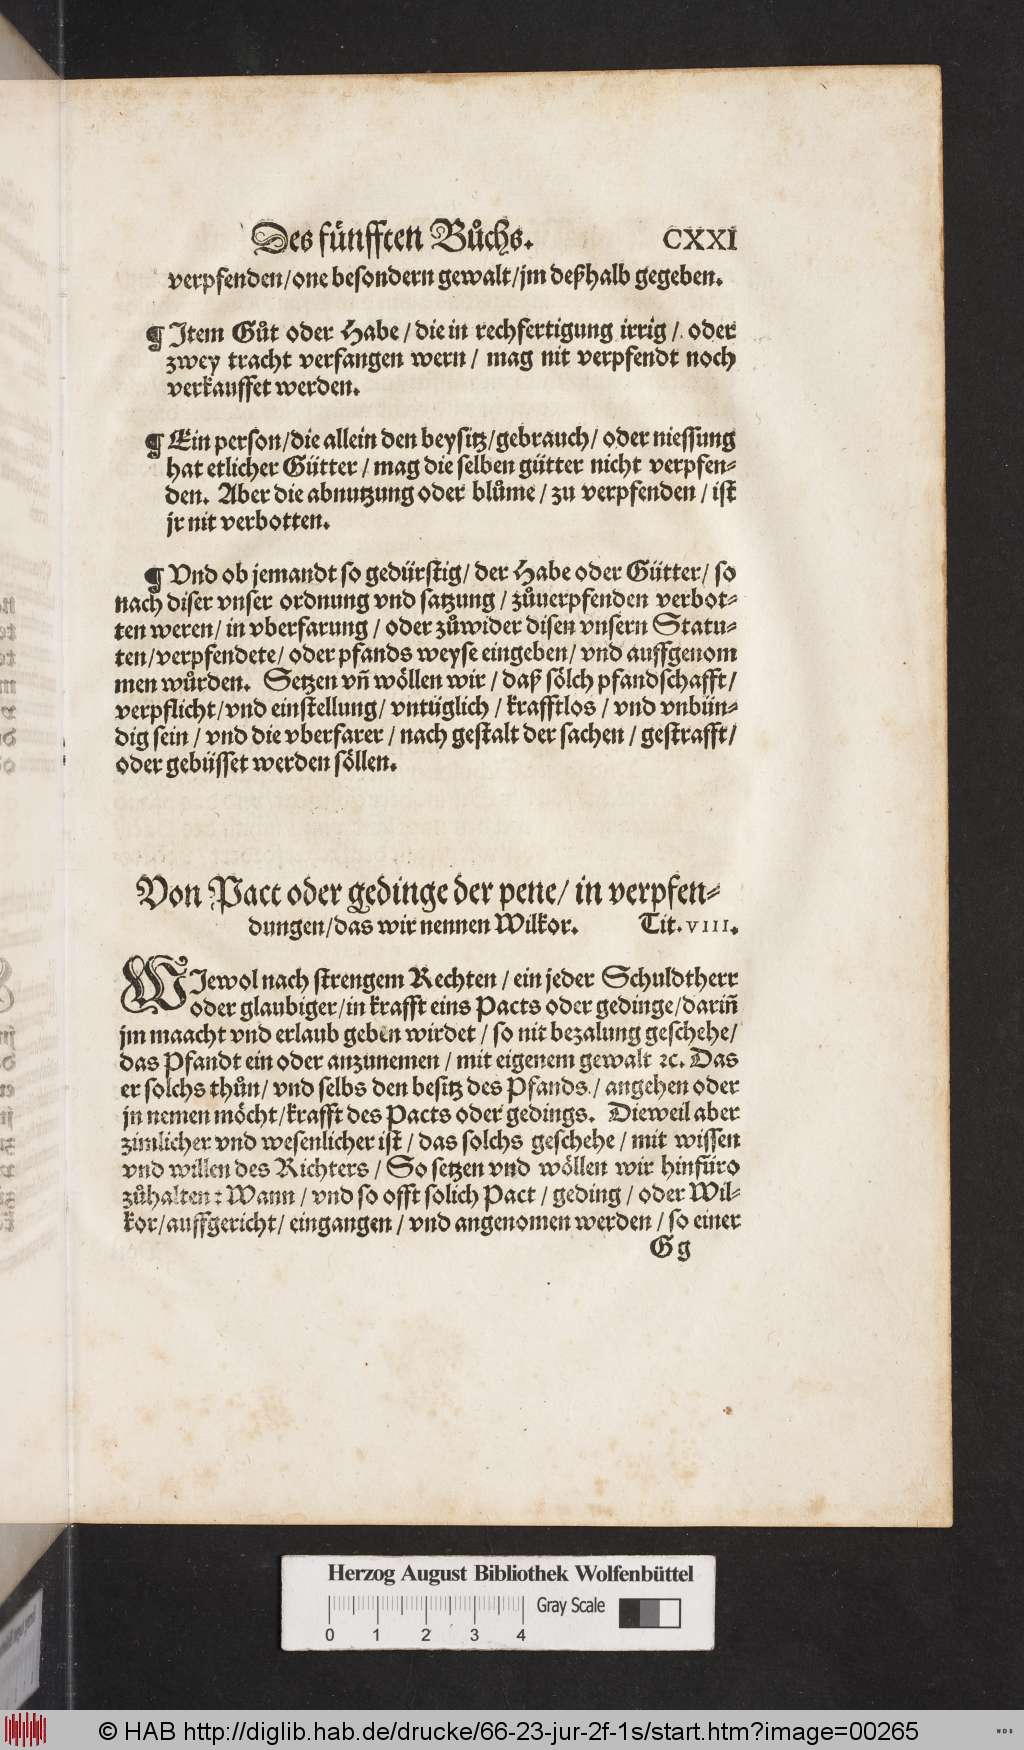 Des fünfften Bůchs. CXXI
verpfenden/one besondern gewalt/jm deßhalb gegeben.
¶ Item Gůt oder Habe/die in rechfertigung irrig/oder
zwey tracht verfangen wern/ mag nit verpfendt noch
verkauffet werden.
¶ Ein person/die allein den beysitz/gebrauch/ oder niessung
hat etlicher Gütter/ mag die selben gütter nicht verpfen⸗
den. Aber die abnutzung oder blůme/ zu verpfenden/ ist
jr nit verbotten.
¶ Vnd ob jemandt so gedürstig/ der Habe oder Gütter/ so
nach diser vnser ordnung vnd satzung/ zůuerpfenden verbot⸗
ten weren/ in vberfarung/ oder zůwider disen vnsern Statu⸗
ten/verpfendete/ oder pfands weyse eingeben/ vnd auffgenom
men wůrden. Setzen vñ wöllen wir/ daß sölch pfandschafft/
verpflicht/vnd einstellung/ vntüglich/ krafftlos/ vnd vnbün⸗
dig sein/ vnd die vberfarer/ nach gestalt der sachen/ gestrafft/
oder gebüsset werden söllen.
Von Pact oder gedinge der pene/ in verpfen⸗
dungen/das wir nennen Wilkor. Tit. VIII.
WJewol nach strengem Rechten/ ein jeder Schuldtherr
oder glaubiger/in krafft eins Pacts oder gedinge/dariñ
jm maacht vnd erlaub geben wirdet/ so nit bezalung geschehe/
das Pfandt ein oder anzunemen/ mit eigenem gewalt ꝛc. Das
er solchs thůn/ vnd selbs den besitz des Pfands/ angehen oder
jn nemen möcht/krafft des Pacts oder gedings. Dieweil aber
zimlicher vnd wesenlicher ist/ das solchs geschehe/ mit wissen
vnd willen des Richters/ So setzen vnd wöllen wir hinfüro
zůhalten: Wann/ vnd so offt solich Pact/ geding/ oder Wil⸗
kor/auffgericht/ eingangen/ vnd angenomen werden/ so einer
Gg
Herzog August Bibliothek Wolfenbüttel
Gray Scale
0 1 2 3 4
© HAB http://diglib.hab.de/drucke/66-23-jur-2f-1s/start.htm?image=00265